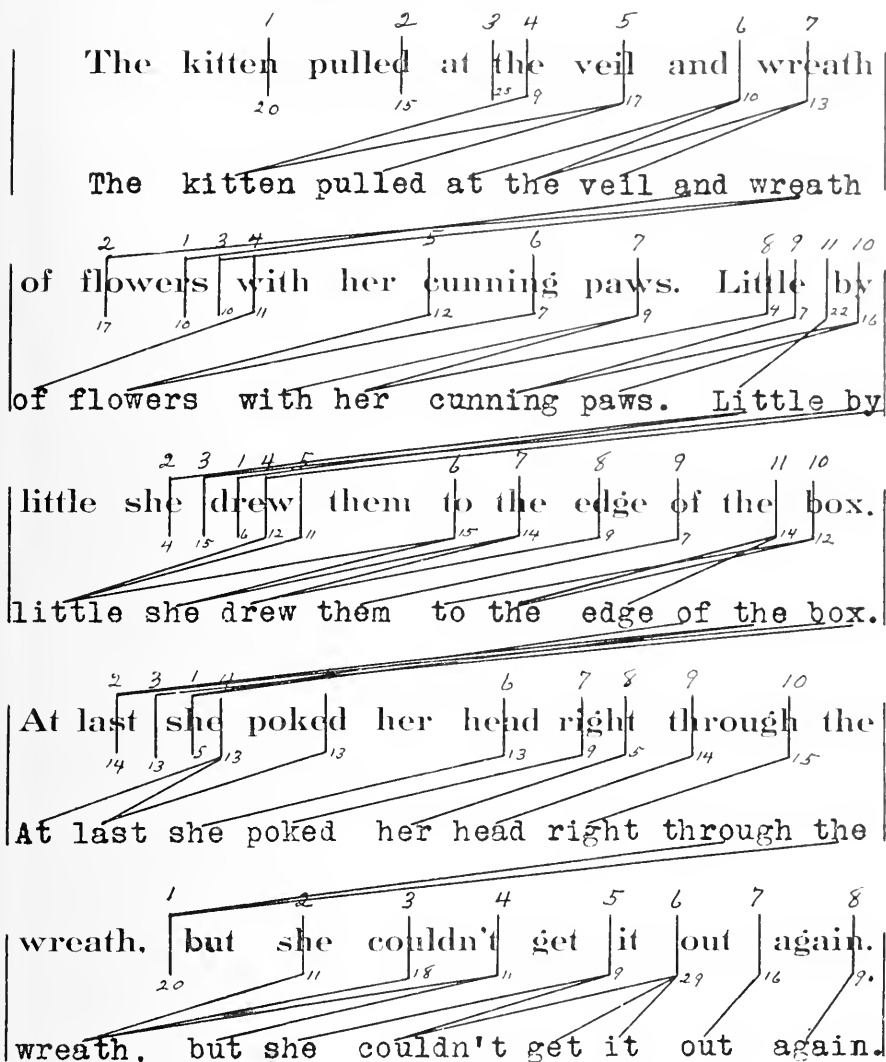 1 2 3 4 5 6 7
The kitten pulled at the veil and wreath
20 15 25 9 17 10 13
The kitten pulled at the veil and wreath
2 1 3 4 5 6 7 8 9 11 10
of flowers with her cunning paws. Little by
17 10 10 11 12 7 9 4 7 22 16
of flowers with her cunning paws. Little by
2 3 1 4 5 6 7 8 9 11 10
little she drew them to the edge of the box.
4 15 6 12 11 15 14 9 7 14 12
little she drew them to the edge of the box.
2 3 1 4 6 7 8 9 10
At last she poked her head right through the
14 13 5 13 13 13 9 5 14 15
At last she poked her head right through the
1 2 3 4 5 6 7 8
wreath, but she couldn't get it out again.
20 11 18 11 9 29 16 9.
wreath, but she couldn't get it out again.